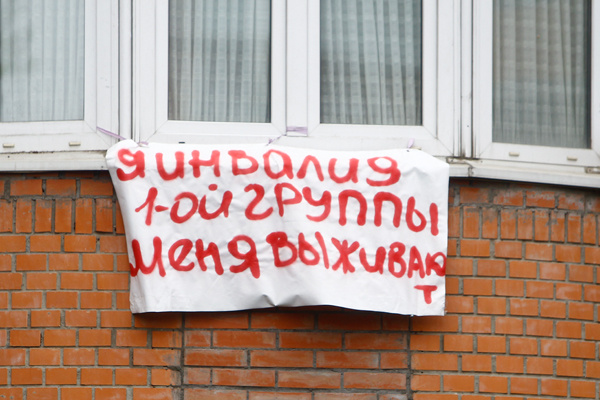 Я ИНВАЛИД
1-ОЙ ГРУППЫ
МЕНЯ ВЫЖИВАЮ
Т